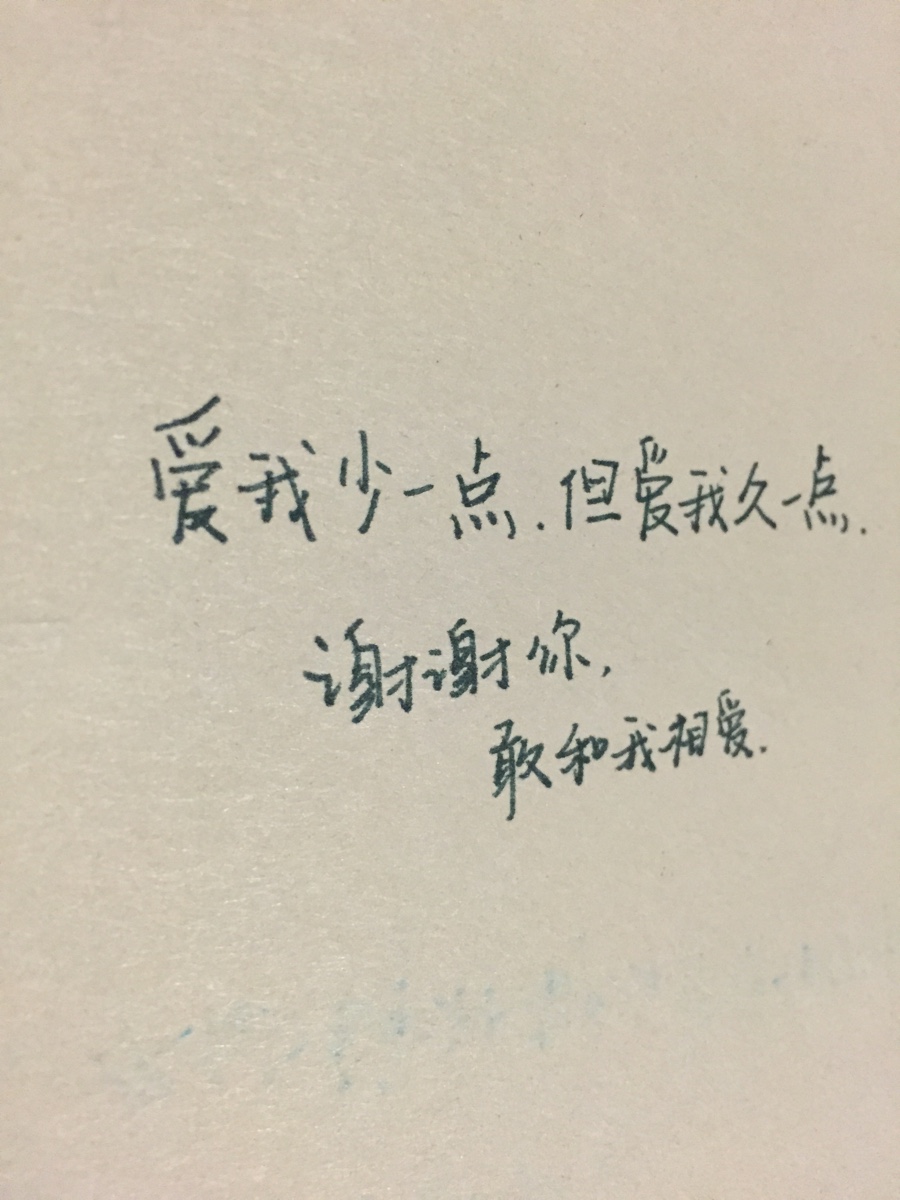 爱我少一点.但爱我久一点.
谢谢你,
敢和我相爱.